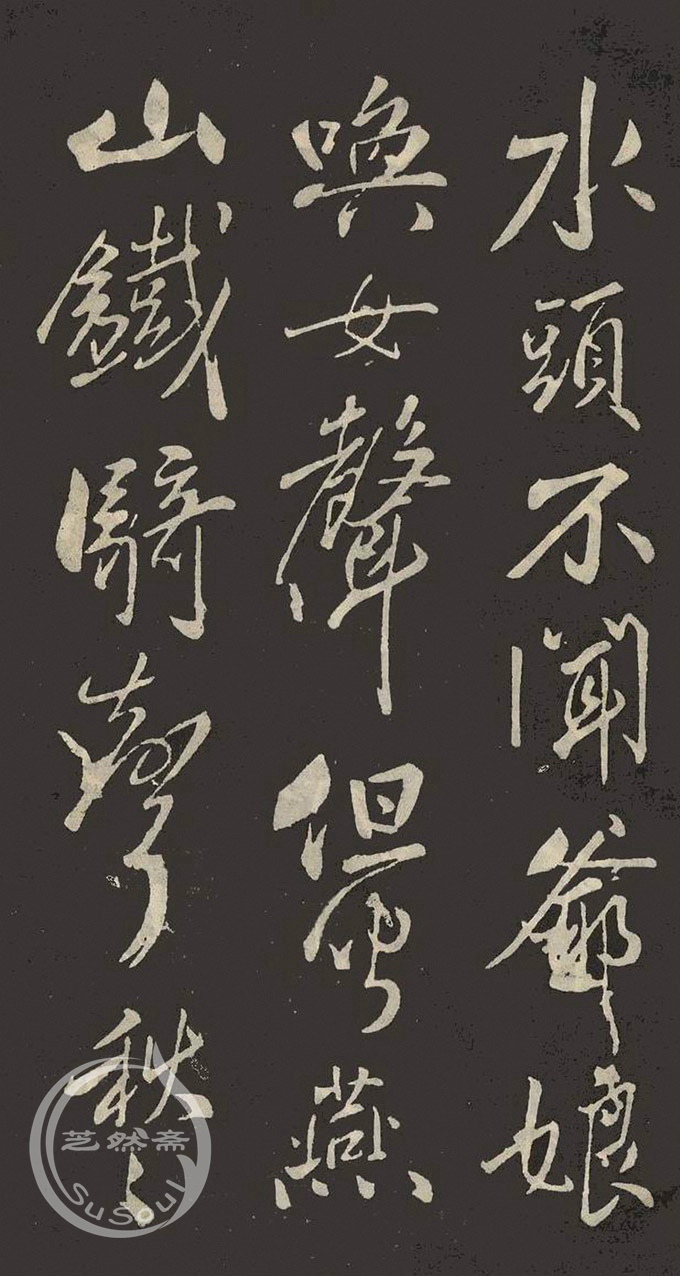 水頭不聞爺娘
喚女聲但聞燕
山鐵騎聲秋〻
芝然斋
SuSoul